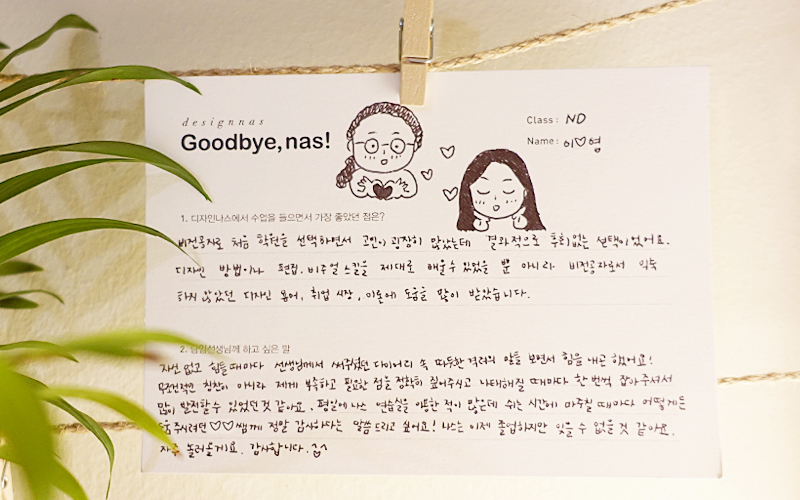 designnas
Goodbye, nas!
Class: ND
Name: 이♡영
1. 디자인나스에서 수업을 들으면서 가장 좋았던 점은?
비전공자로 처음 학원을 선택하면서 고민이 굉장히 많았는데 결과적으로 후회없는 선택이었어요.
디자인 방법이나 편집, 비주얼 스킬을 제대로 배울 수 있었을 뿐 아니라 비전공자로서 익숙
하지 않았던 디자인 용어, 취업 시장, 이론에 도움을 많이 받았습니다.
2. 담임선생님께 하고 싶은 말
자신 없고 힘들 때마다 선생님께서 써주셨던 다이어리 속 따듯한 격려의 말들 보면서 힘을 내곤 했어요!
무조건적인 칭찬이 아니라 제게 부족하고 필요한 점을 정확히 짚어주시고 나태해질 때마다 한 번씩 잡아주셔서
많이 발전할 수 있었던 것 같아요. 평일에 나스 연습실을 이용한 적이 많은데 쉬는 시간에 마주칠 때마다 어떻게든
도움 주시려던 ♡♡쌤께 정말 감사하다는 말씀 드리고 싶어요! 나스는 이제 졸업하지만 잊을 수 없을 것 같아요.
자주 놀러올게요. 감사합니다.